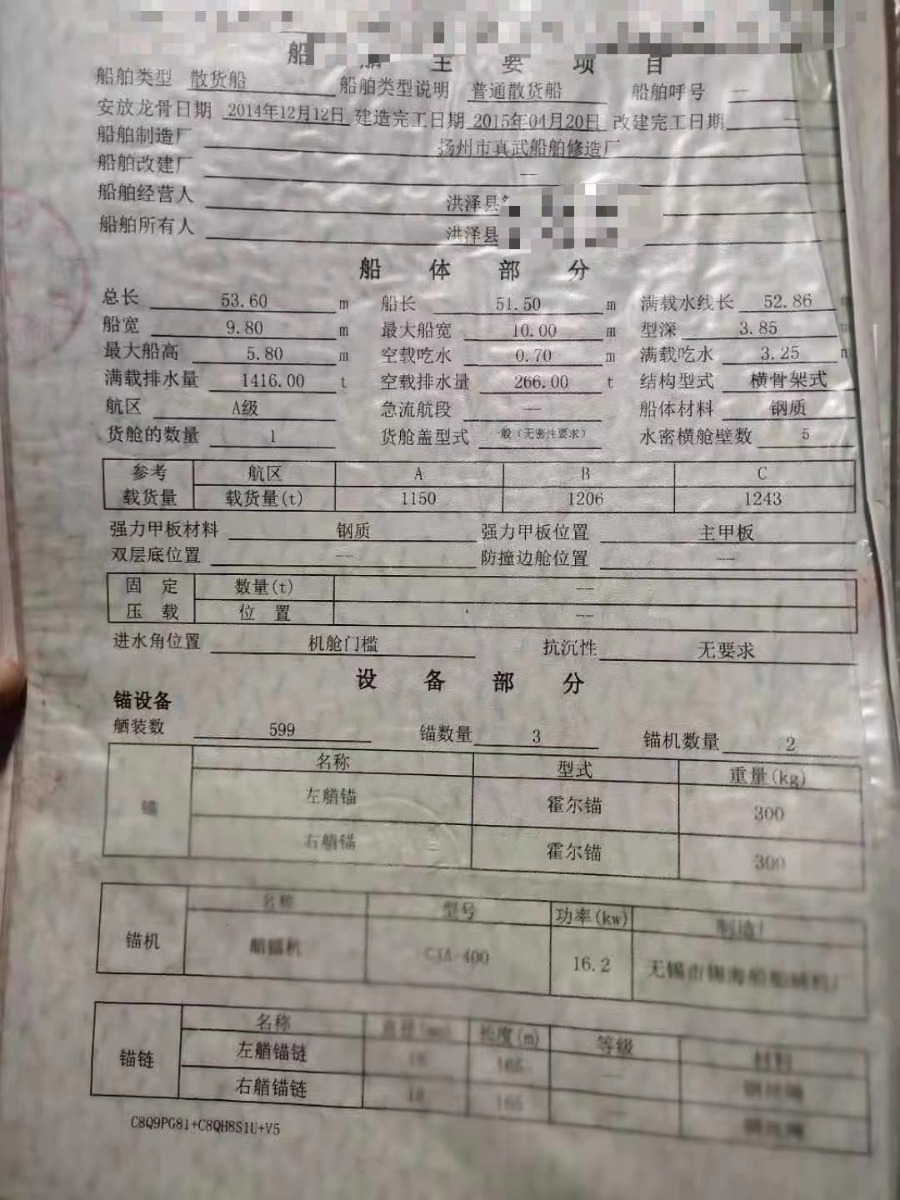 船 舶 主 要 项 目
船舶类型 散货船 船舶类型说明 普通散货船 船舶呼号 --
安放龙骨日期 2014年12月12日 建造完工日期 2015年04月20日 改建完工日期 --
船舶制造厂 扬州市真武船舶修造厂
船舶改建厂 --
船舶经营人 洪泽县
船舶所有人 洪泽县
船 体 部 分
总长 53.60 m 船长 51.50 m 满载水线长 52.86 m
船宽 9.80 m 最大船宽 10.00 m 型深 3.85 m
最大船高 5.80 m 空载吃水 0.70 m 满载吃水 3.25 m
满载排水量 1416.00 t 空载排水量 266.00 t 结构型式 横骨架式
航区 A级 急流航段 -- 船体材料 钢质
货舱的数量 1 货舱盖型式 一般(无密性要求) 水密横舱壁数 5
参考 航区 A B C
载货量 载货量(t) 1150 1206 1243
强力甲板材料 钢质 强力甲板位置 主甲板
双层底位置 -- 防撞边舱位置 --
固 定 数量(t) --
压 载 位 置 --
进水角位置 机舱门槛 抗沉性 无要求
设 备 部 分
锚设备
舾装数 599 锚数量 3 锚机数量 2
名称 型式 重量(kg)
锚 左艏锚 霍尔锚 300
右艏锚 霍尔锚 300
名称 型号 功率(kw)
锚机 艏锚机 CJA-400 16.2
名称 长度(m) 等级 材料
锚链 左艏锚链 165
右艏锚链 165
C8Q9PG81+C8QH8S1U+V5